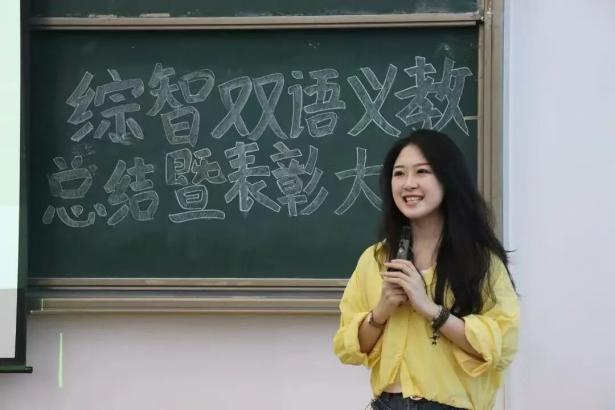 综智双语义教
总结暨表彰大